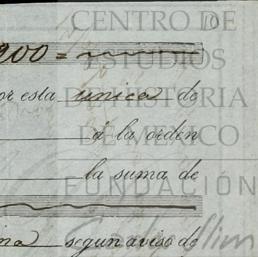 CENTRO DE
ESTUDIOS
DE HISTORIA
DE MÉXICO
FUNDACIÓN
Carlos Slim
200 =
or esta unica de
á la orden
la suma de
segun aviso de